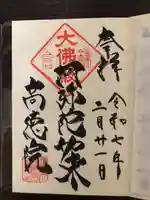 奉拝
令和七年
二月廿一日
大佛殿
阿弥陀如来
高徳院